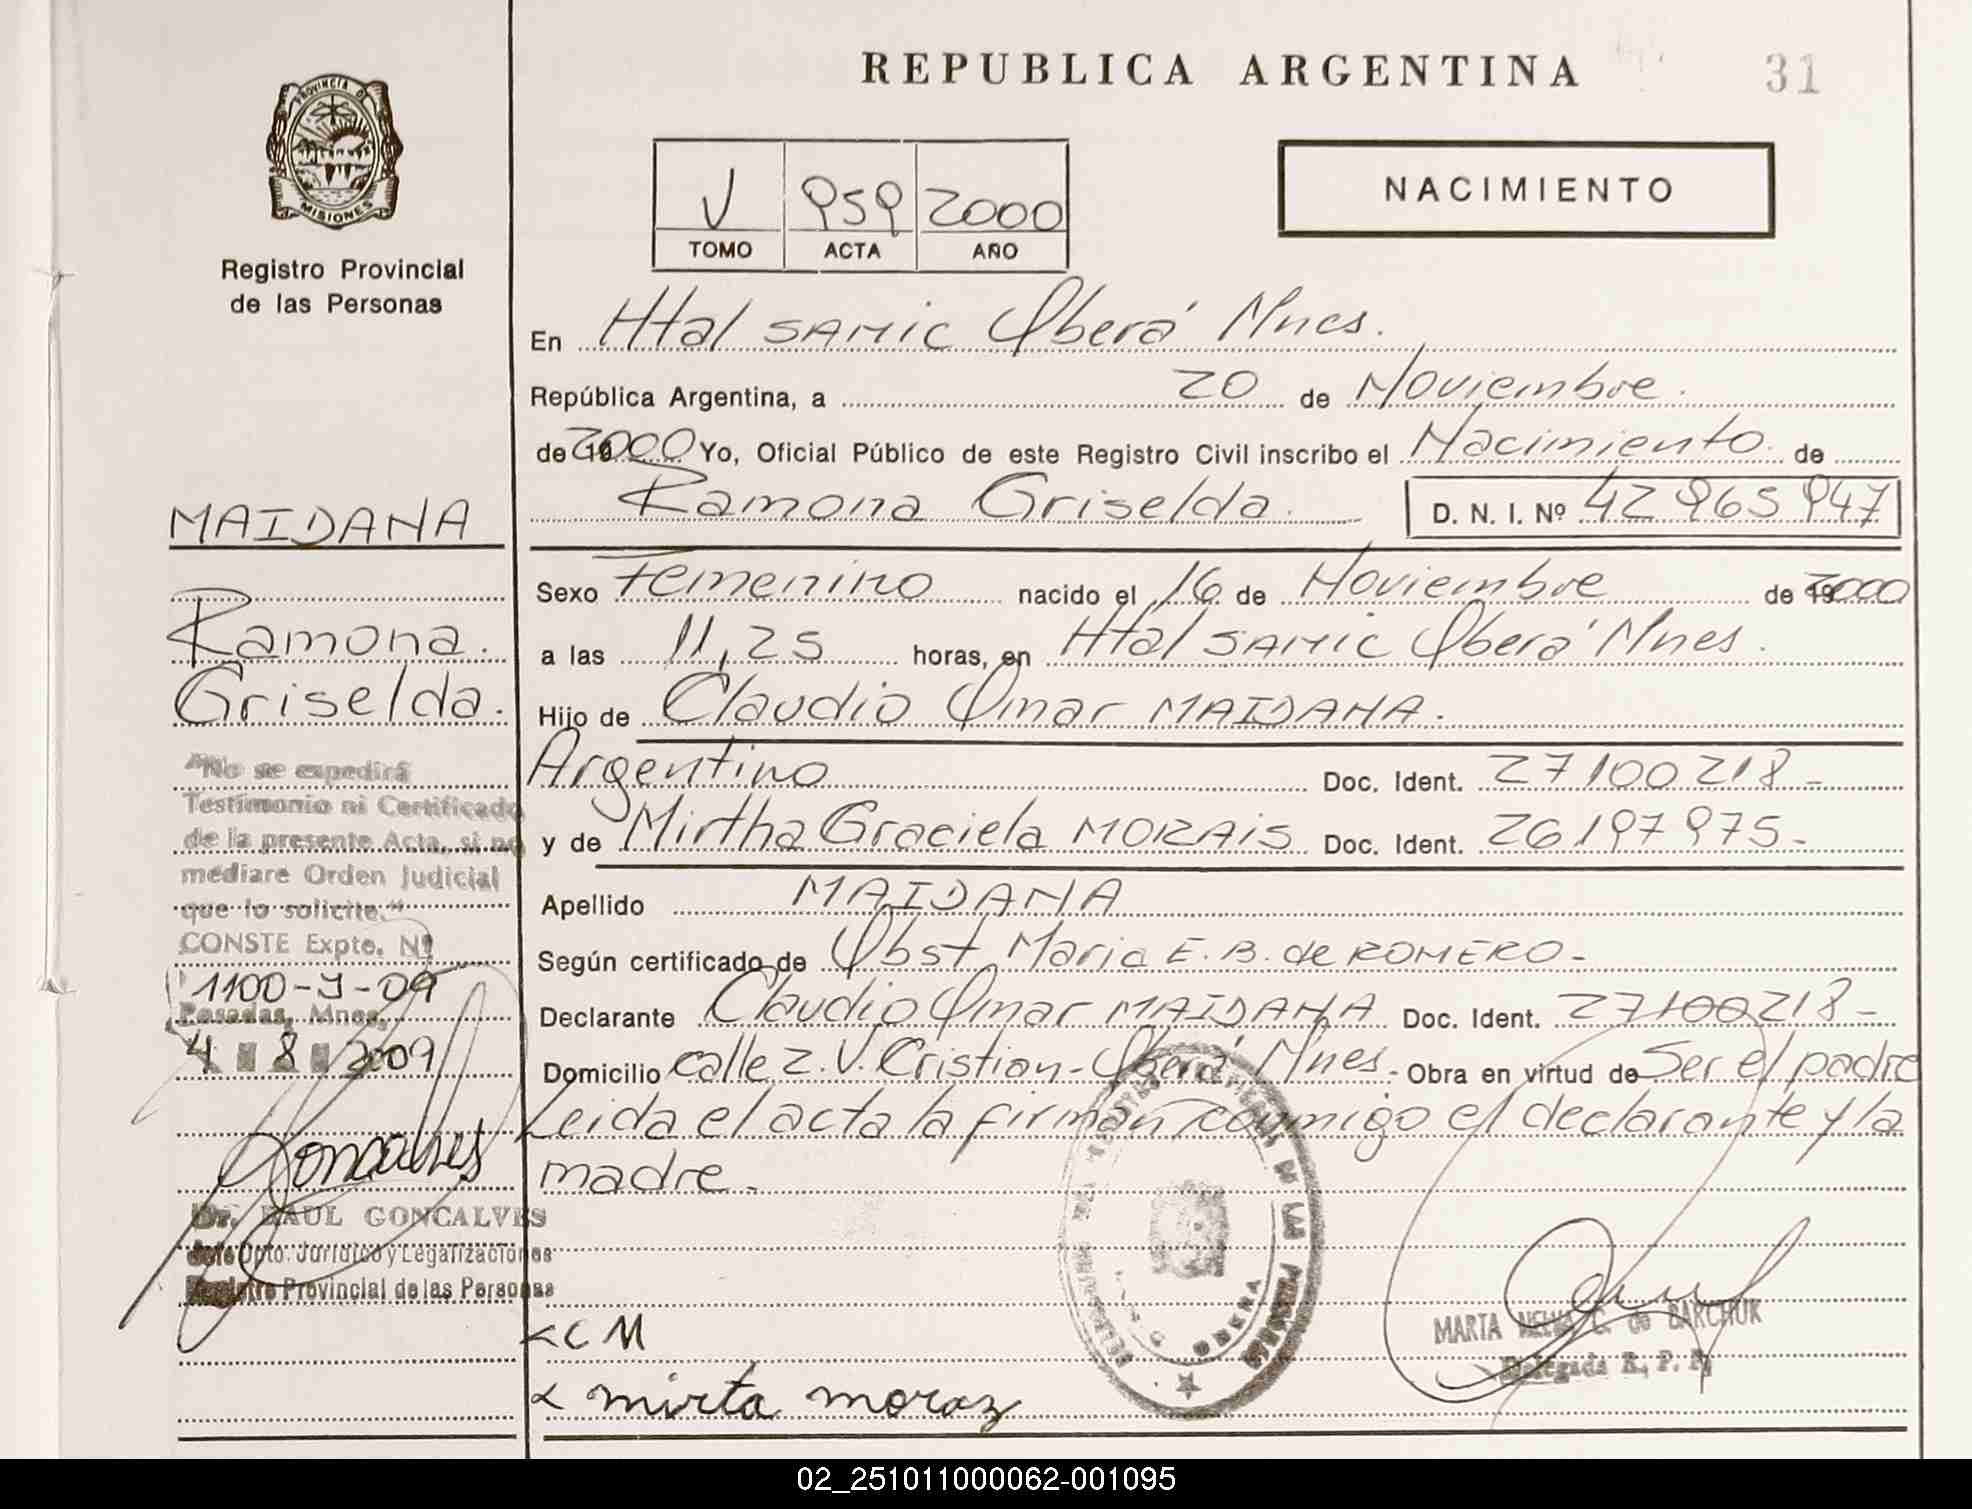 REPUBLICA ARGENTINA
31
PROVINCIA DE
MISIONES
Registro Provincial
de las Personas
V 959 2000
TOMO ACTA AÑO
NACIMIENTO
En Htal SAMIC Oberá Mnes.
República Argentina, a 20 de Noviembre.
de 2000 Yo, Oficial Público de este Registro Civil inscribo el Nacimiento de
Ramona Griselda. D. N. I. Nº 42 965 947
MAIDANA
Ramona.
Griselda.
Sexo Femenino nacido el 16 de Noviembre de 2000
a las 11,25 horas, en Htal SAMIC Oberá Mnes.
Hijo de Claudio Omar MAIDANA.
Argentino Doc. Ident. 27100218-
y de Mirtha Graciela MORAIS Doc. Ident. 26197975-
Apellido MAIDANA
Según certificado de Obst Maria E. B. de ROMERO-
Declarante Claudio Omar MAIDANA Doc. Ident. 27100218-
Domicilio calle 2. V. Cristian- Oberá Mnes- Obra en virtud de Ser el padre
Leida el acta la firman conmigo el declarante y la
madre.
"No se expedirá
Testimonio ni Certificado
de la presente Acta, si no
mediare Orden Judicial
que lo solicite."
CONSTE Expte. Nº
1100-J-09
Posadas, Mnes,
4 8 2009
Goncalves
Dr. RAUL GONCALVES
Jefe Dpto. Jurídico y Legalizaciones
Registro Provincial de las Personas
LCM
mirta moraz
DE LAS PERSONAS
MARTA NELVA C. de BARCHUK
Delegada R. P. P.
02_251011000062-001095